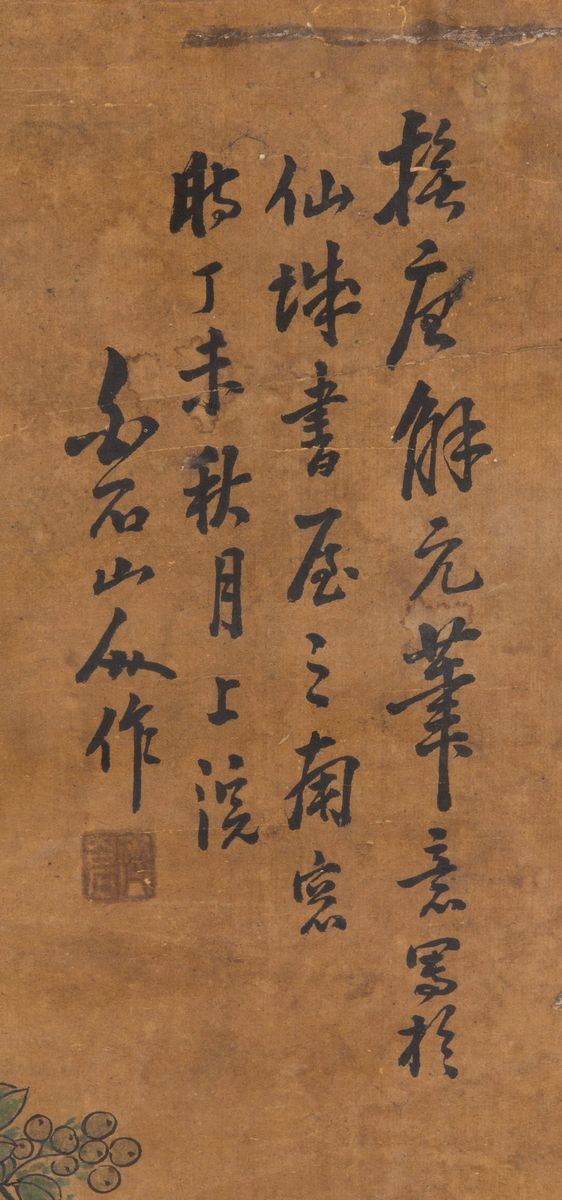 撫唐解元筆意寫於
仙城書屋之南窓
時丁未秋月上浣
石山作